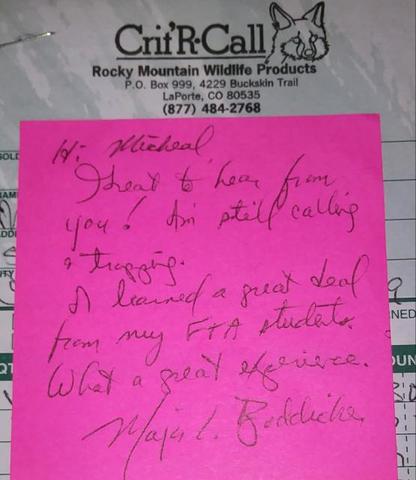 Crit'R·Call
Rocky Mountain Wildlife Products
P.O. Box 999, 4229 Buckskin Trail
LaPorte, CO 80535
(877) 484-2768
Hi Micheal
Great to hear from
you! Am still calling
& trapping.
I learned a great deal
from my FTA students.
What a great experience.
Major L. Boddicker